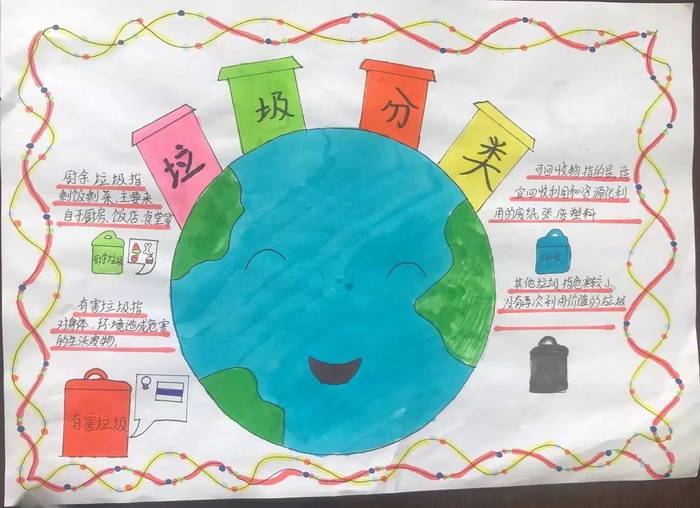 垃
圾
分
类
厨余垃圾指
剩饭剩菜、主要来
自于厨房、饭店、食堂等
厨余垃圾
有害垃圾指
对身体、环境造成危害
的生活废物。
有害垃圾
可回收物指的是适
宜回收利用和资源化利
用的废纸张、废塑料
其他垃圾指危害较小、
没有再次利用价值的垃圾